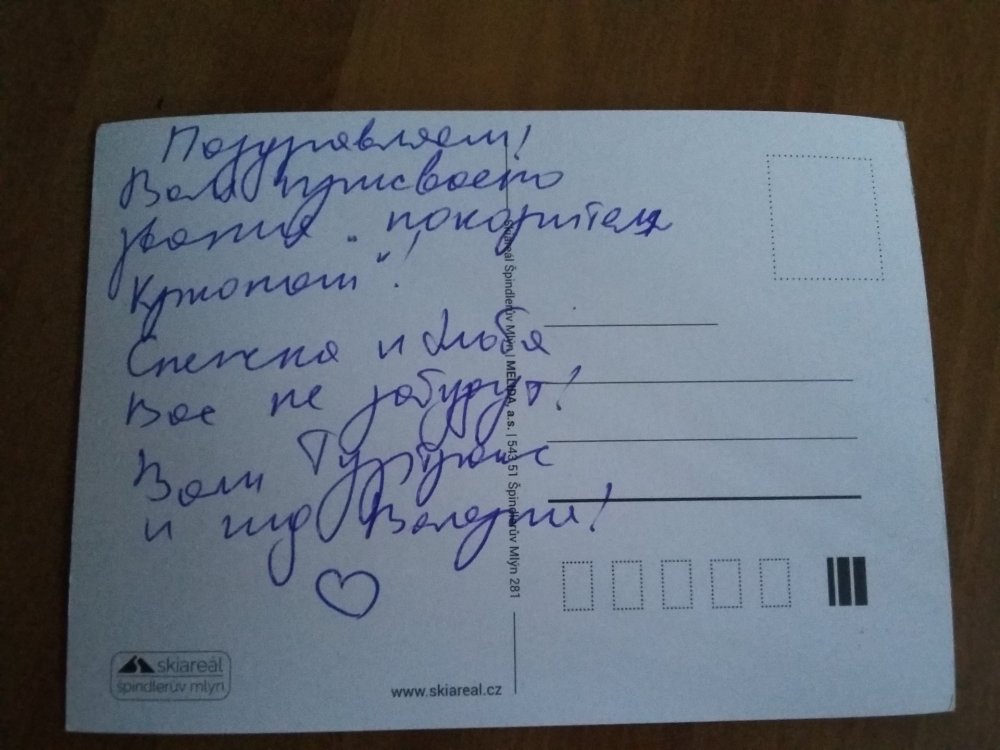 Поздравляем!
Вам присвоено
звание "покорителя
Крконош"!
Снежка и Лаба
Вас не забудут!
Ваш Турбюнс
и гид Валерия!
skiareál Špindlerův Mlýn | MELIDA, a.s. | 543 51 Špindlerův Mlýn 281
skiareál
špindlerův mlýn
www.skiareal.cz